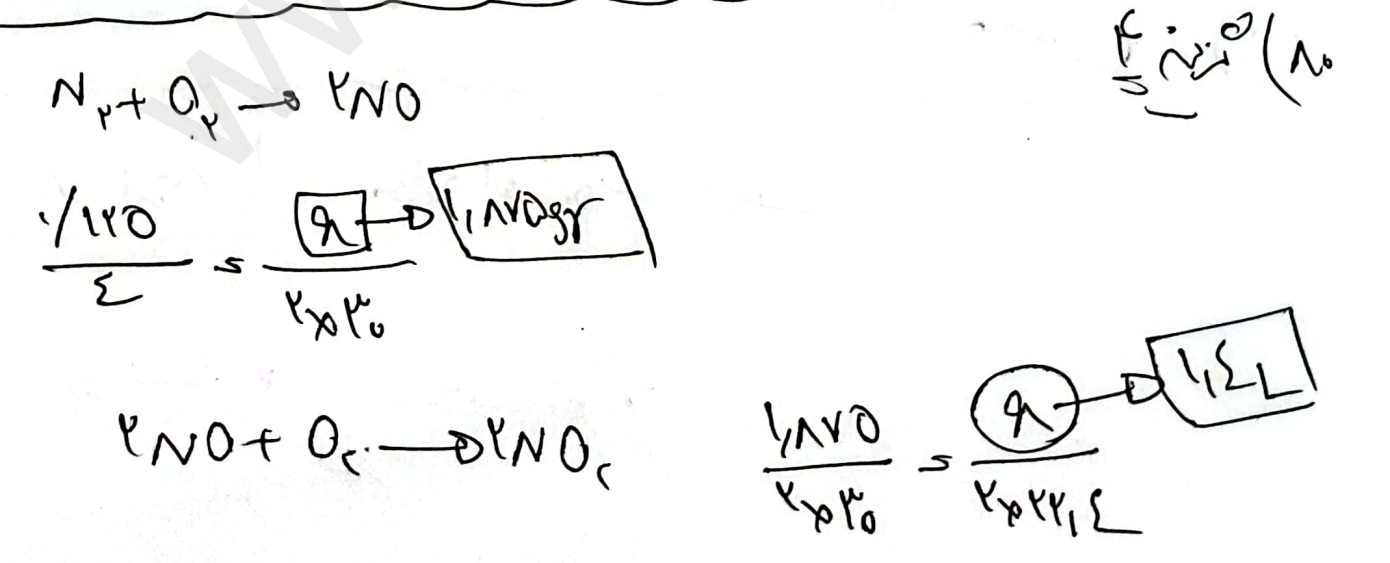 ۸۰) گزینه ۴
N₂ + O₂ → ۲NO
۰/۱۲۵ / ٤ = x / ۲×۳۰ → ۱,۸۷۵gr
۲NO + O₂ → ۲NO₂
۱,۸۷۵ / ۲×۳۰ = x / ۲×۲۲,٤ → ۱,٤ L